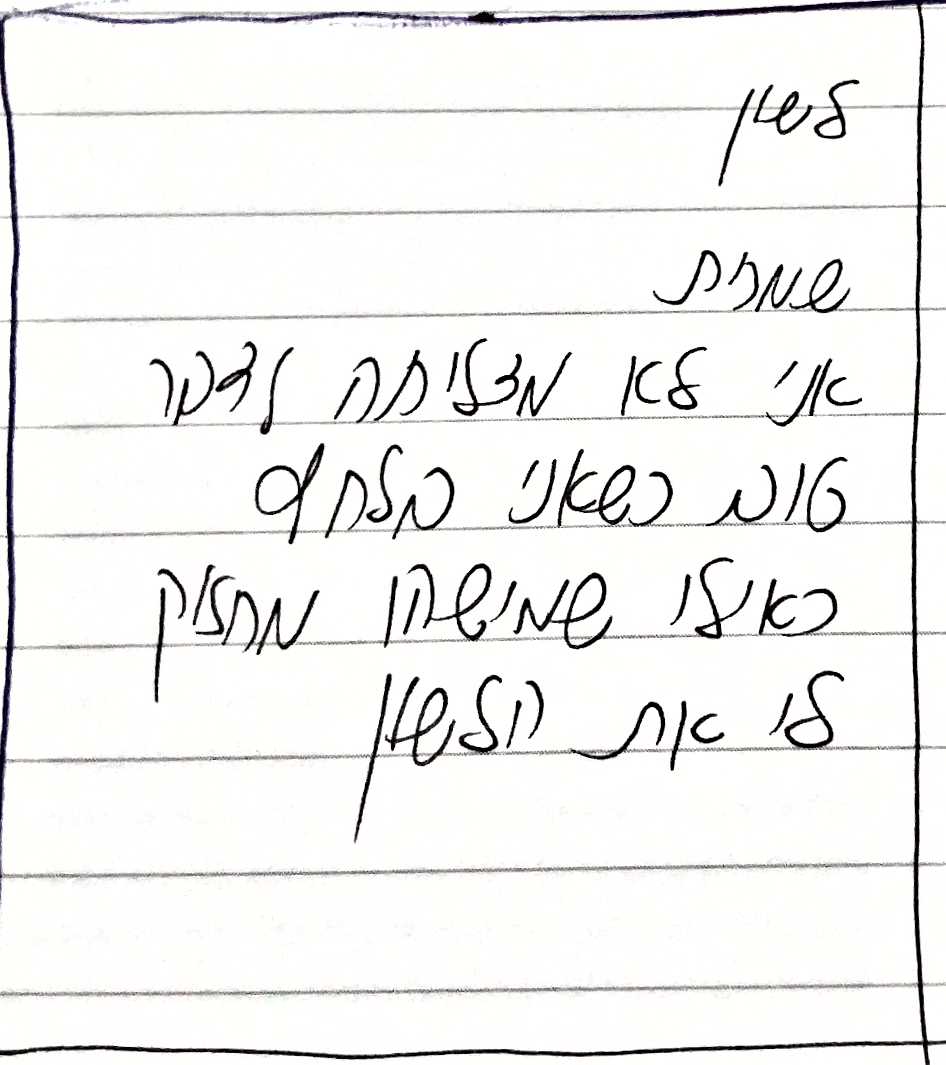 לשון
שמרת
אני לא מצליחה לדבר
טוב כשאני בלחץ
כאילו שמישהו מחזיק
לי את הלשון